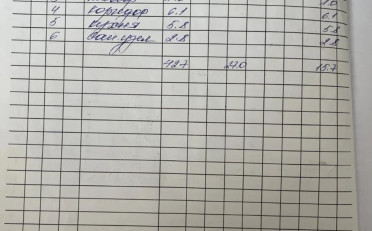 4 коридор 6.1 6.1
5 кухня 5.8 5.8
6 сан узел 2.8 2.8
42.7 27.0 15.7